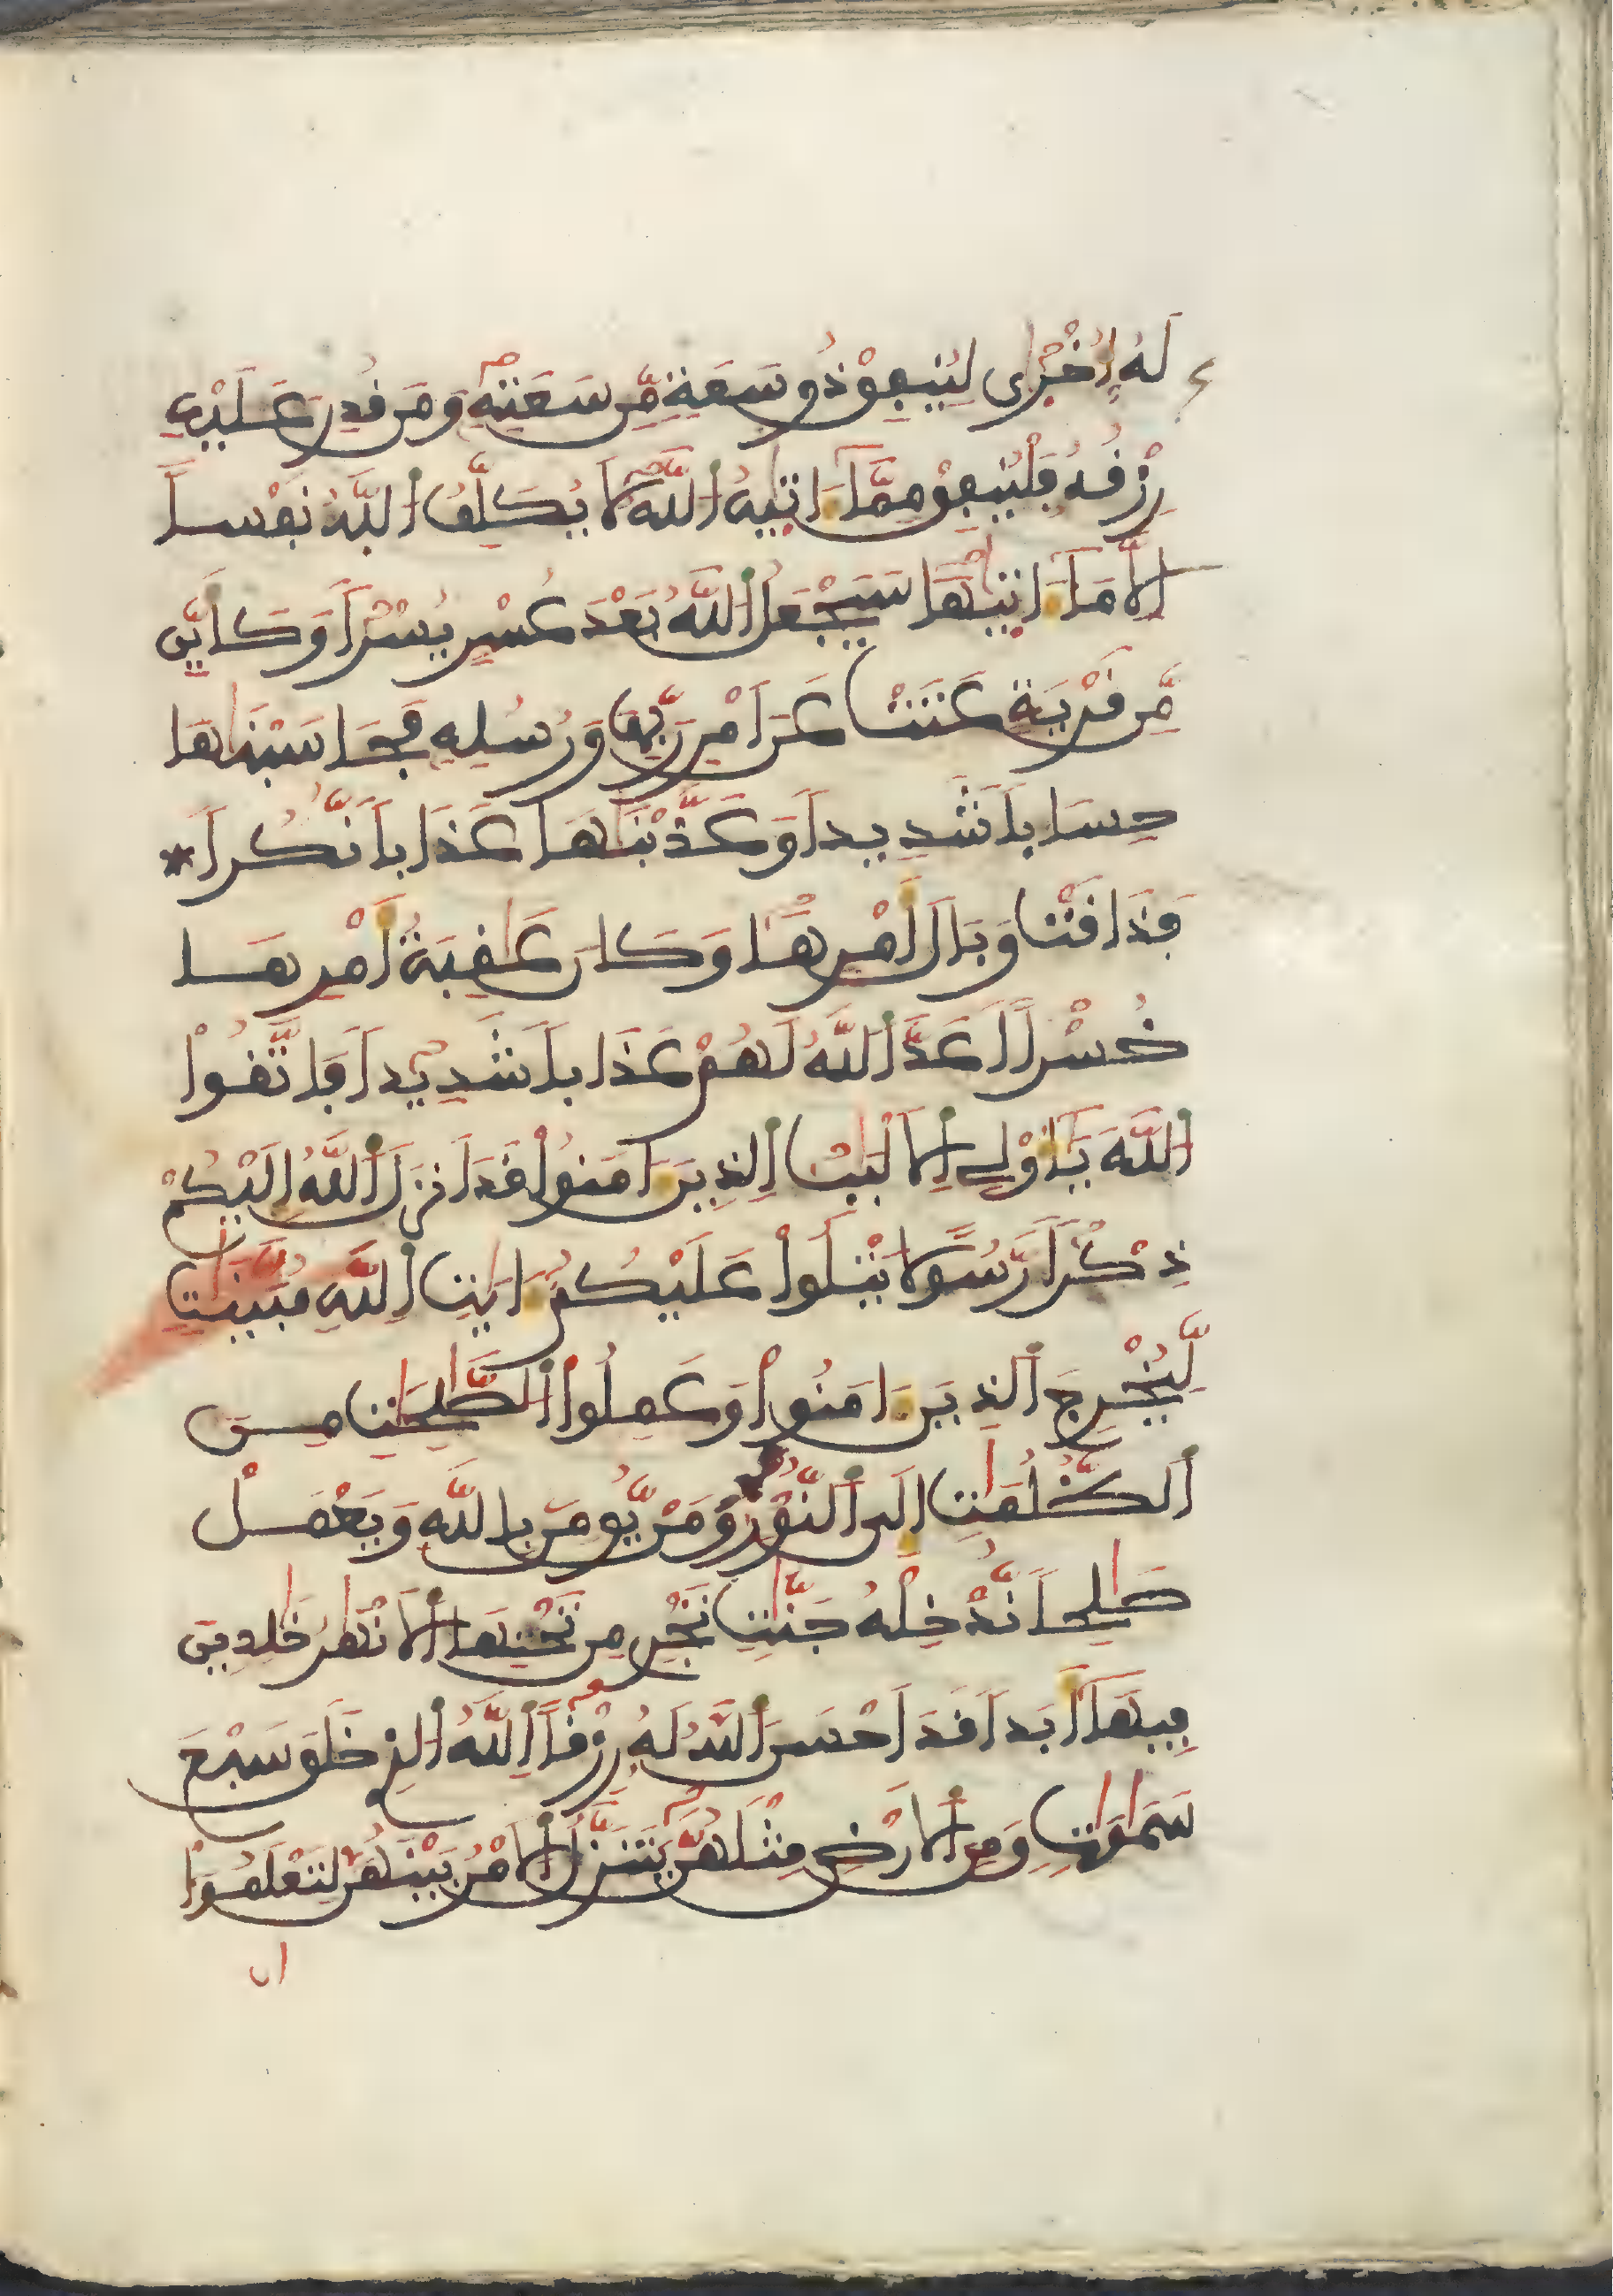 لَهُۥ أُخْرٜى لِيُنفِقْ ذُو سَعَةٍ مِّن سَعَتِهِۦ وَمَن قُدِرَ عَلَيْهِ
رِزْقُهُۥ فَلْيُنفِقْ مِمَّآ ءَاتٜيٰهُ اُللَّهُ لَا يُكَلِّفُ اُللَّهُ نَفْساً
اِلَّا مَآ ءَاتٜيٰهَا سَيَجْعَلُ اُللَّهُ بَعْدَ عُسْرٍ يُسْراً وَكَأَيِّن
مِّن قَرْيَةٍ عَتَتْ عَنَ اَمْرِ رَبِّهَا وَرُسُلِهِۦ فَحَاسَبْنَٰهَا
حِسَاباً شَدِيداً وَعَذَّبْنَٰهَا عَذَاباً نُّكُراً *
فَذَاقَتْ وَبَالَ أَمْرِهَا وَكَانَ عَٰقِبَةُ أَمْرِهَا
خُسْراً اَعَدَّ اَللَّهُ لَهُمْ عَذَاباً شَدِيداً فَاتَّقُواْ
اُللَّهَ يَٰٓأُوْلِے اِلَالْبَٰبِ اِلذِينَ ءَامَنُواْ قَدَ اَنزَلَ اَللَّهُ إِلَيْكُمْ
ذِكْراً رَّسُولًا يَتْلُواْ عَلَيْكُمُۥٓ ءَايَٰتِ اِللَّهِ مُبَيَّنَٰتٍ
لِّيُخْرِجَ اَلذِينَ ءَامَنُواْ وَعَمِلُواْ اُلصَّٰلِحَٰتِ مِنَ
اَلظُّلُمَٰتِ إِلَى اَلنُّورِ وَمَنْ يُّومِنۢ بِاللَّهِ وَيَعْمَلْ
صَٰلِحاً نُّدْخِلْهُ جَنَّٰتٍ تَجْرِے مِن تَحْتِهَا اَلَانْهَٰرُ خَٰلِدِينَ
فِيهَآ أَبَداً قَدَ اَحْسَنَ اَللَّهُ لَهُۥ رِزْقاً اِللَّهُ اُلذِے خَلَقَ سَبْعَ
سَمَٰوَٰتٍ وَمِنَ اَلَارْضِ مِثْلَهُنَّ يَتَنَزَّلُ اُلَامْرُ بَيْنَهُنَّ لِتَعْلَمُوٓاْ